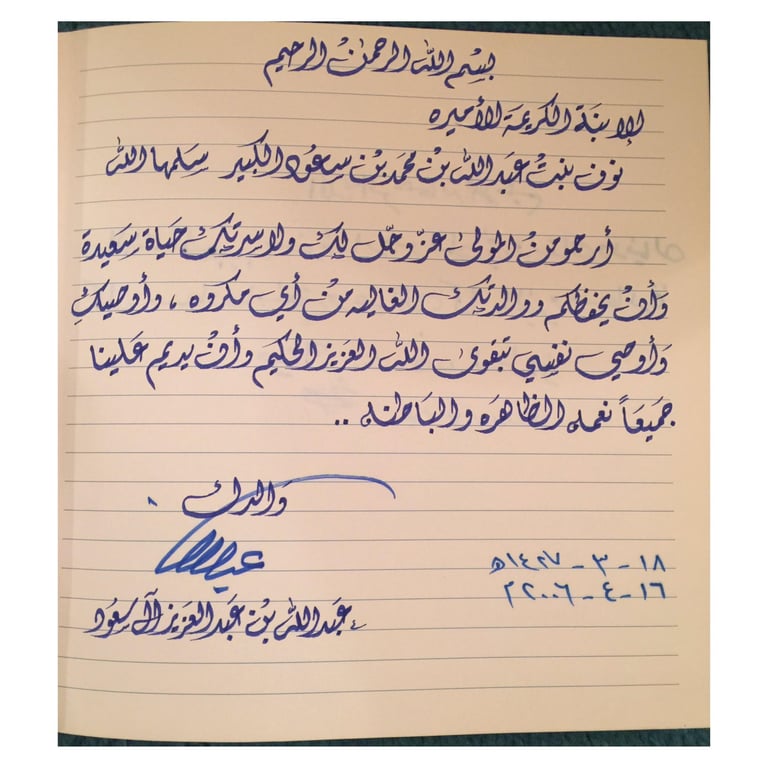 بسم الله الرحمن الرحيم
الإبنة الكريمة الأميره
نوف بنت عبدالله بن محمد بن سعود الكبير سلمها الله
أرجو من المولى عزّ وجّل لكِ ولاسرتكِ حياة سعيدة
وأن يحفظكم ووالدتكِ الغاليه من أي مكروه ، وأوصيكِ
وأوصي نفسي بتقوى الله العزيز الحكيم وأن يديم علينا
جميعاً نعمه الظاهره والباطنه ..
والدك
عبدالله
١٨ - ٣ - ١٤٢٧هـ
١٦ - ٤ - ٢٠٠٦م
عبدالله بن عبدالعزيز آل سعود